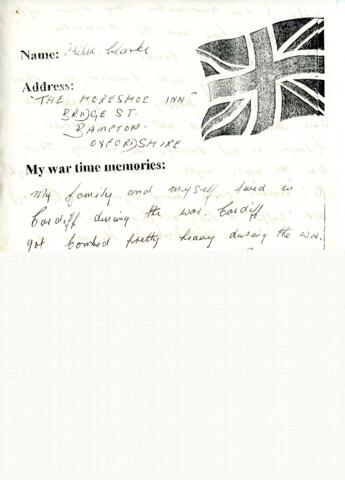 Name: Hilda Clarke
Address:
"THE HORESHOE INN"
BRIDGE ST.
BAMPTON.
OXFORDSHIRE
My war time memories:
My family and myself lived in
Cardiff during the war. Cardiff
got bombed pretty heavy during the war.